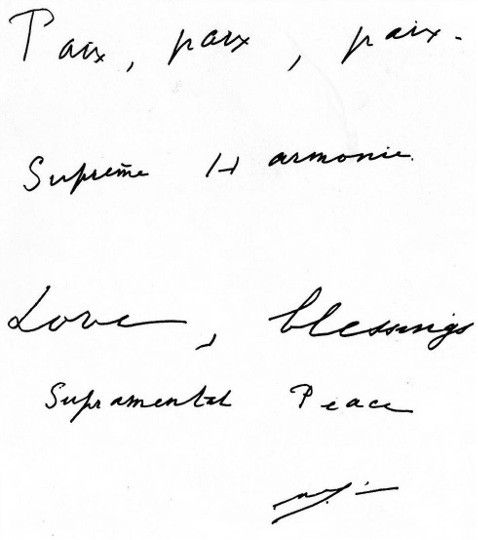 Paix, paix, paix.
Suprême Harmonie.
Love, blessings
Supramental Peace